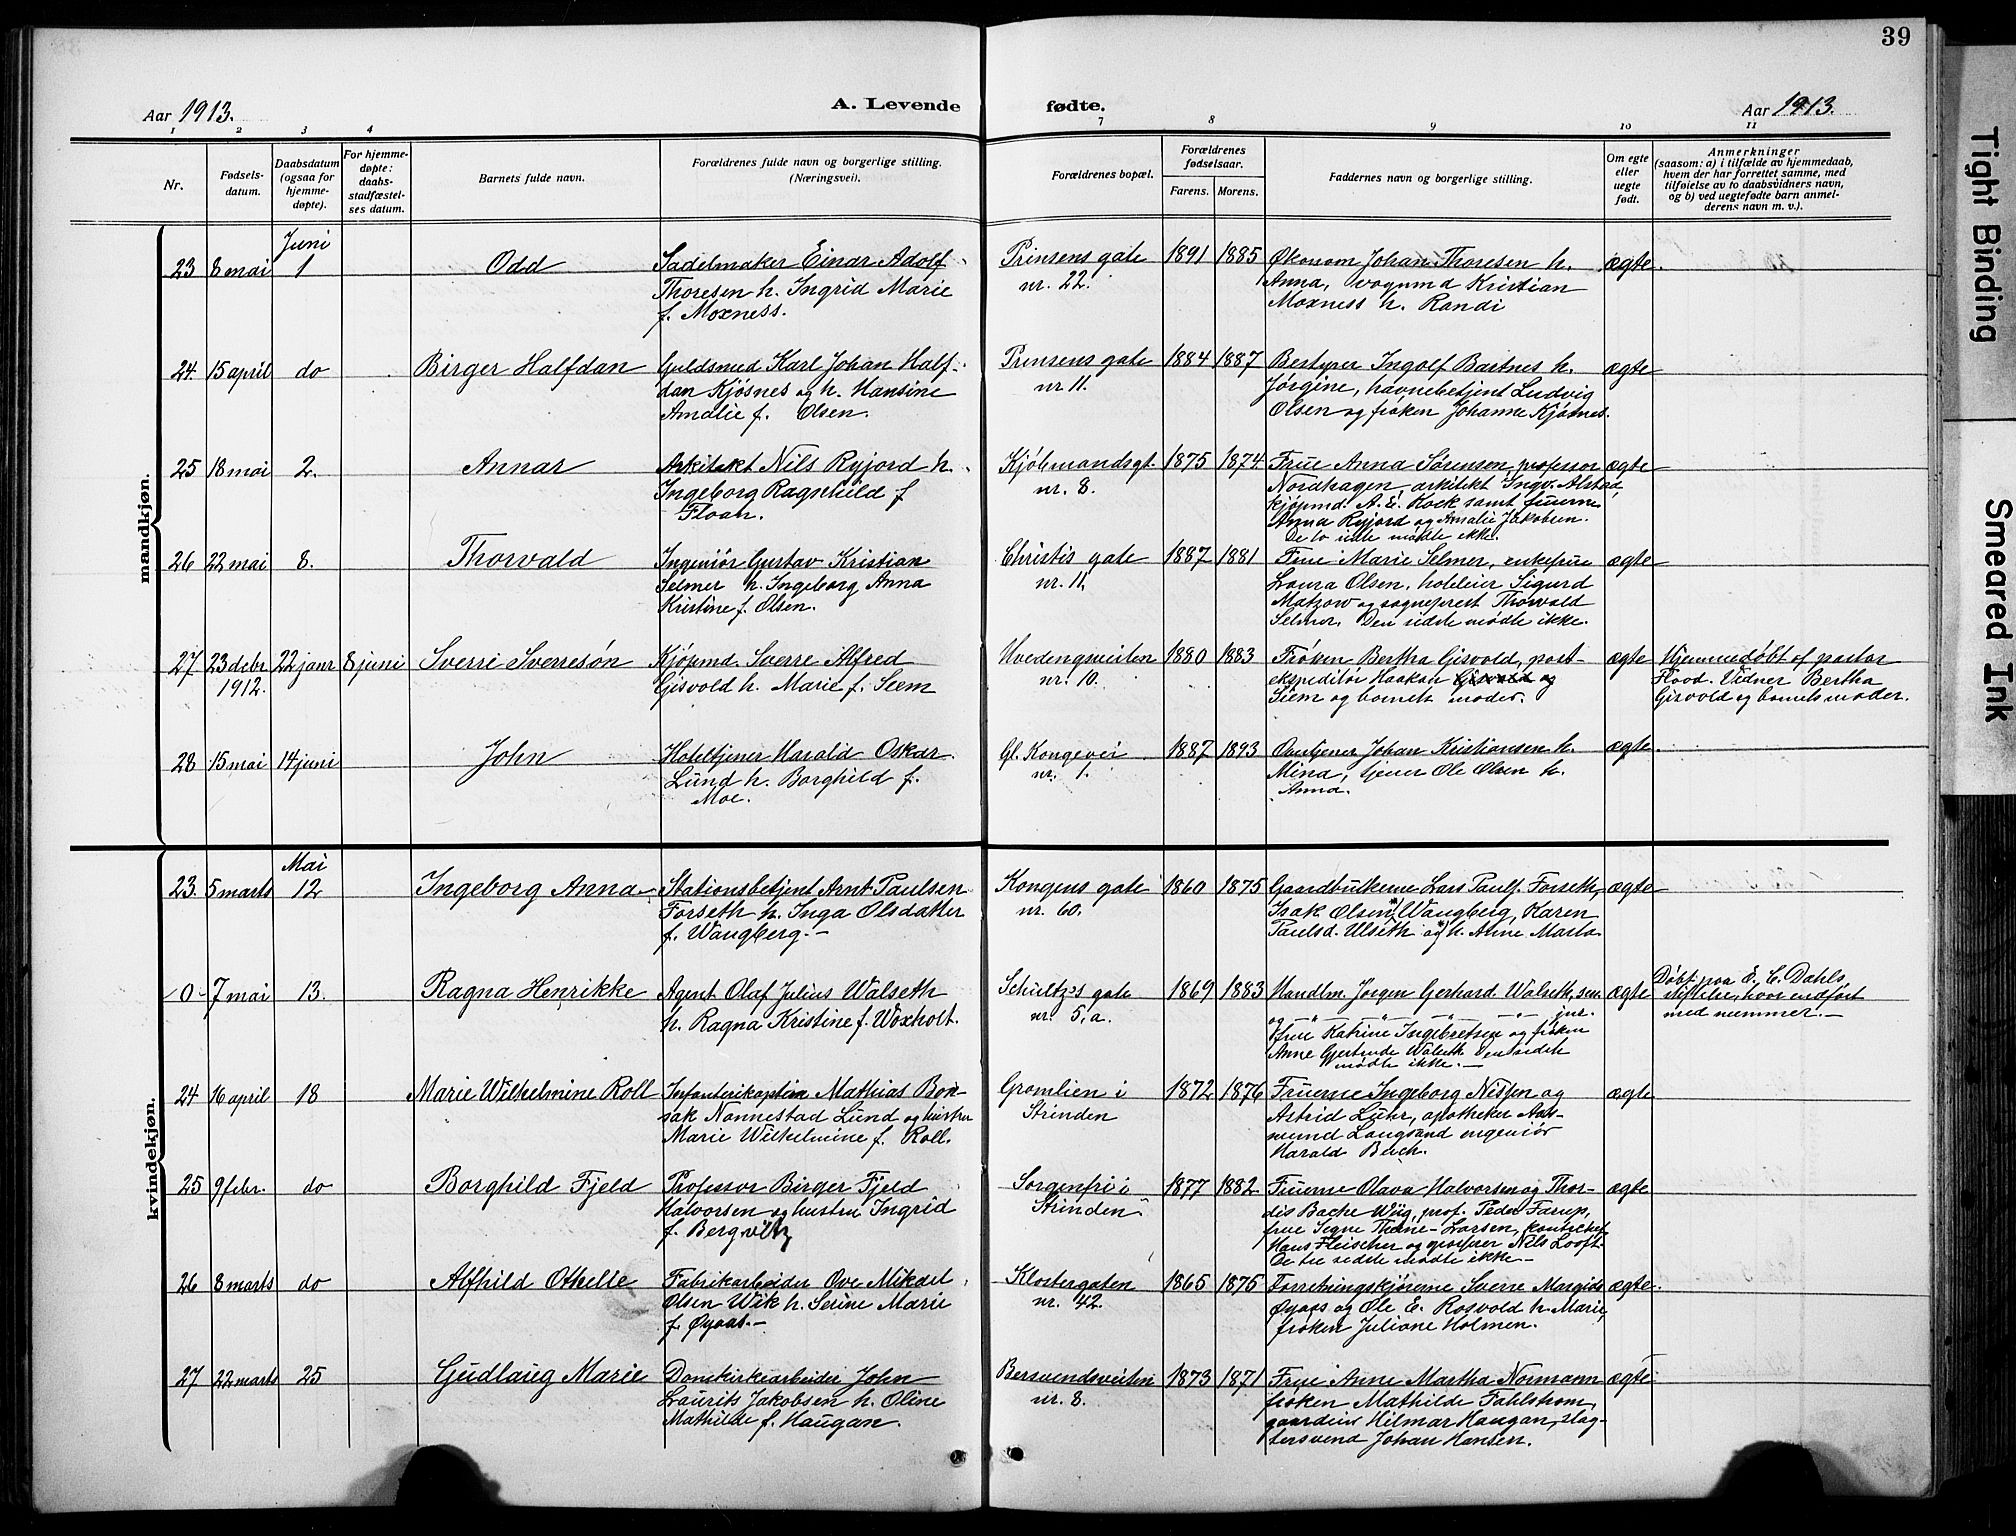 39
Aar 1913.
A. Levende
fødte.
Aar 1913.
1 2 3 4 7 8 9 10 11
Nr.
Fødsels-
datum.
Daabsdatum
(ogsaa for
hjemme-
døpte).
For hjemme-
døpte:
daabs-
stadfæstel-
ses datum.
Barnets fulde navn.
Forældrenes fulde navn og borgerlige stilling.
(Næringsvei).
Forældrenes bopæl.
Forældrenes
fødselsaar.
Farens. Morens.
Faddernes navn og borgerlige stilling.
Om egte
eller
uegte
født.
Anmerkninger
(saasom: a) i tilfælde av hjemmedaab,
hvem der har forrettet samme, med
tilføielse av to daabsvidners navn,
og b) ved uegtefødte barn anmel-
derens navn m. v.).
mandkjøn.
Juni
23 8 mai 1 Odd
Sadelmaker Einar Adolf
Thoresen h. Ingrid Marie
f. Moxness.
Prinsens gate
nr. 22.
1891 1885
Økonom Johan Thoresen h.
Anna, vognmd Kristian
Moxness h. Randi
ægte.
24. 15 april do Birger Halfdan
Guldsmed Karl Johan Half-
dan Kjøsnes og h. Hansine
Amalie f. Olsen.
Prinsens gate
nr 11.
1884 1887
Bestyrer Ingolf Bartnes h.
Jørgine, havnebetjent Ludvig
Olsen og frøken Johanne Kjøsnes.
ægte
25 18 mai 2. Annar
Arkitekt Nils Ryjord h.
Ingeborg Ragnhild f
Floan.
Kjøbmandsgt.
nr. 8.
1875 1874
Frue Anna Sørensen, professor
Nordhagen, arkitekt Ingv. Alstad,
kjøpmd. A. E. Kock samt fruerne
Anna Ryjord og Amalie Jakobsen.
De to sidste mødte ikke.
ægte
26 22 mai 8. Thorvald
Ingeniør Gustav Kristian
Selmer h. Ingeborg Anna
Kristine f. Olsen.
Christis gate
nr. 11.
1887 1881
Frue Marie Selmer, enkefrue
Laura Olsen, hoteleier Sigurd
Matzow og sogneprest Thorvald
Selmer. Den sidste mødte ikke.
ægte
27 23 debr
1912.
22 janr 8 juni Sverri Sverresøn
Kjøpmd. Sverre Alfred
Gisvold h. Marie f. Siem
Hvedengsveiten
nr. 10.
1880 1883
Frøken Bertha Gisvold, post-
ekspeditør Haakon Gisvold og
Siem og barnets moder.
ægte
Hjemmedøbt af pastor
Flood. Vidner Bertha
Gisvold og barnets moder.
28 15 mai 14 juni John
Hoteltjener Harald Oskar
Lund h. Borghild f.
Moe.
Gl. Kongevei
nr. 1.
1887 1893
Overtjener Johan Kristiansen h.
Mina, tjener Ole Olsen h.
Anna.
ægte
kvindekjøn.
Mai
23. 5 marts 12 Ingeborg Anna
Stationsbetjent Arnt Paulsen
Forseth h. Inga Olsdatter
f. Wangberg.-
Kongens gate
nr. 60.
1860 1875
Gaardbrukerne Lars Pauls. Forseth,
Isak Olsen Wangberg, Karen
Paulsd. Ulseth og h. Anne Marta
ægte
-0- 7 mai 13. Ragna Henrikke
Agent Olaf Julius Walseth
h. Ragna Kristine f. Woxholt.
Schultz's gate
nr. 5, a.
1869 1883
Handlm. Jørgen Gerhard Walseth, sen.
og -"- -"- -"- -"- jnr.
frue Katrine Ingebretsen og frøken
Anne Gjertrude Walseth. Den sidste
mødte ikke.-
ægte
Døbt paa E. C. Dahls
stiftelse, hvor indført
med nummer.-
24 16 april 18 Marie Wilhelmine Roll
Infanterikaptein Mathias Bon-
sak Nannestad Lund og hustru
Marie Wilhelmine f. Roll.
Gramlien i
Strinden
1872 1876
Fruerne Ingeborg Nissen og
Astrid Lühr, apotheker Aas-
mund Langsand ingeniør
Harald Bech.
ægte
25 9 febr. do Borghild Fjeld
Professor Birger Fjeld
Halvorsen og hustru Ingrid
f. Bergwitz
Sorgenfri i
Strinden
1877 1882
Fruerne Olava Halvorsen og Thor-
dis Bache Wiig, prof. Peder Farup,
frue Signe Thine-Larsen,
Hans Fleischer og Nils Looft.
De tre sidste mødte ikke-
ægte
26 8 marts do Alfhild Othelie
Fabrikarbeider Ove Mikael
Olsen Wik h. Serine Marie
f. Øyaas.-
Klostergaten
nr. 42.
1865 1875
Forretningskjørerne Sverre Margido
Øyaas og Ole E. Rosvold h. Marie,
frøken Juliane Holmen.
ægte
27 22 marts 25 Gudlaug Marie
Domkirkearbeider John
Laurits Jakobsen h. Oline
Mathilde f. Haugan.
Bersvendsveiten
nr. 8.
1873 1871
Frue Anne Martha Normann
frøken Mathilde Fahlstrøm,
gaardeier Hilmar Haugan, slag-
tersvend Johan Hansen.
ægte
Tight Binding
Smeared Ink